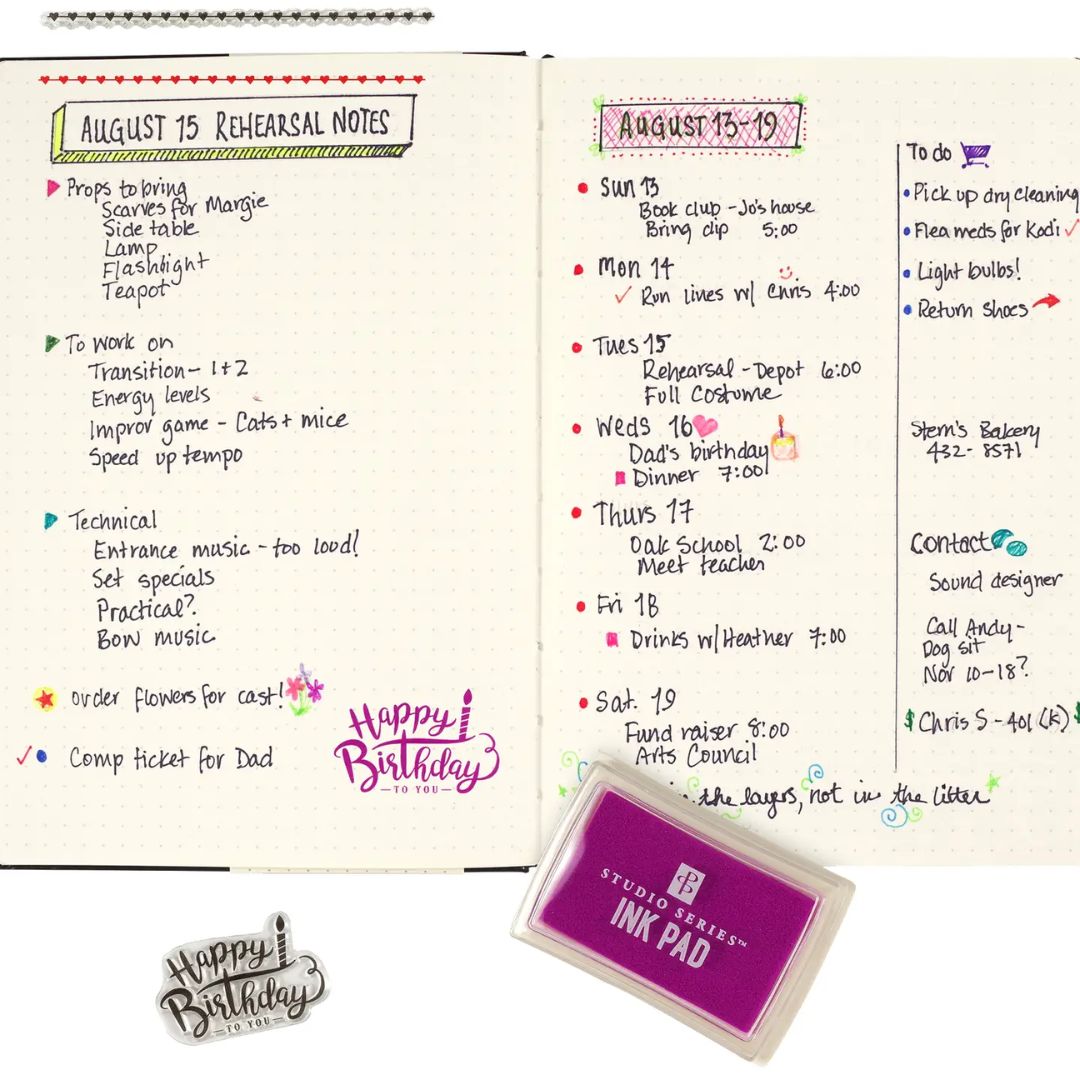 AUGUST 15 REHEARSAL NOTES
Props to bring
Scarves for Margie
Side table
Lamp
Flashlight
Teapot
To work on
Transition - 1+2
Energy levels
Improv game - Cats + mice
Speed up tempo
Technical
Entrance music - too loud!
Set specials
Practical?
Bow music
order flowers for cast!
Comp ticket for Dad
Happy
Birthday
TO YOU
AUGUST 13-19
Sun 13
Book club - Jo's house
Bring dip 5:00
Mon 14
Run lines w/ Chris 4:00
Tues 15
Rehearsal - Depot 6:00
Full Costume
Weds 16
Dad's birthday
Dinner 7:00
Thurs 17
Oak School 2:00
Meet teacher
Fri 18
Drinks w/ Heather 7:00
Sat. 19
Fund raiser 8:00
Arts Council
the layers, not in the litter
To do
Pick up dry cleaning
Flea meds for Kodi
Light bulbs!
Return shoes
Stern's Bakery
432-8571
Contact
Sound designer
Call Andy -
Dog sit
Nov 10-18?
$ Chris S - 401(k) $
STUDIO SERIES™
INK PAD
Happy
Birthday
TO YOU